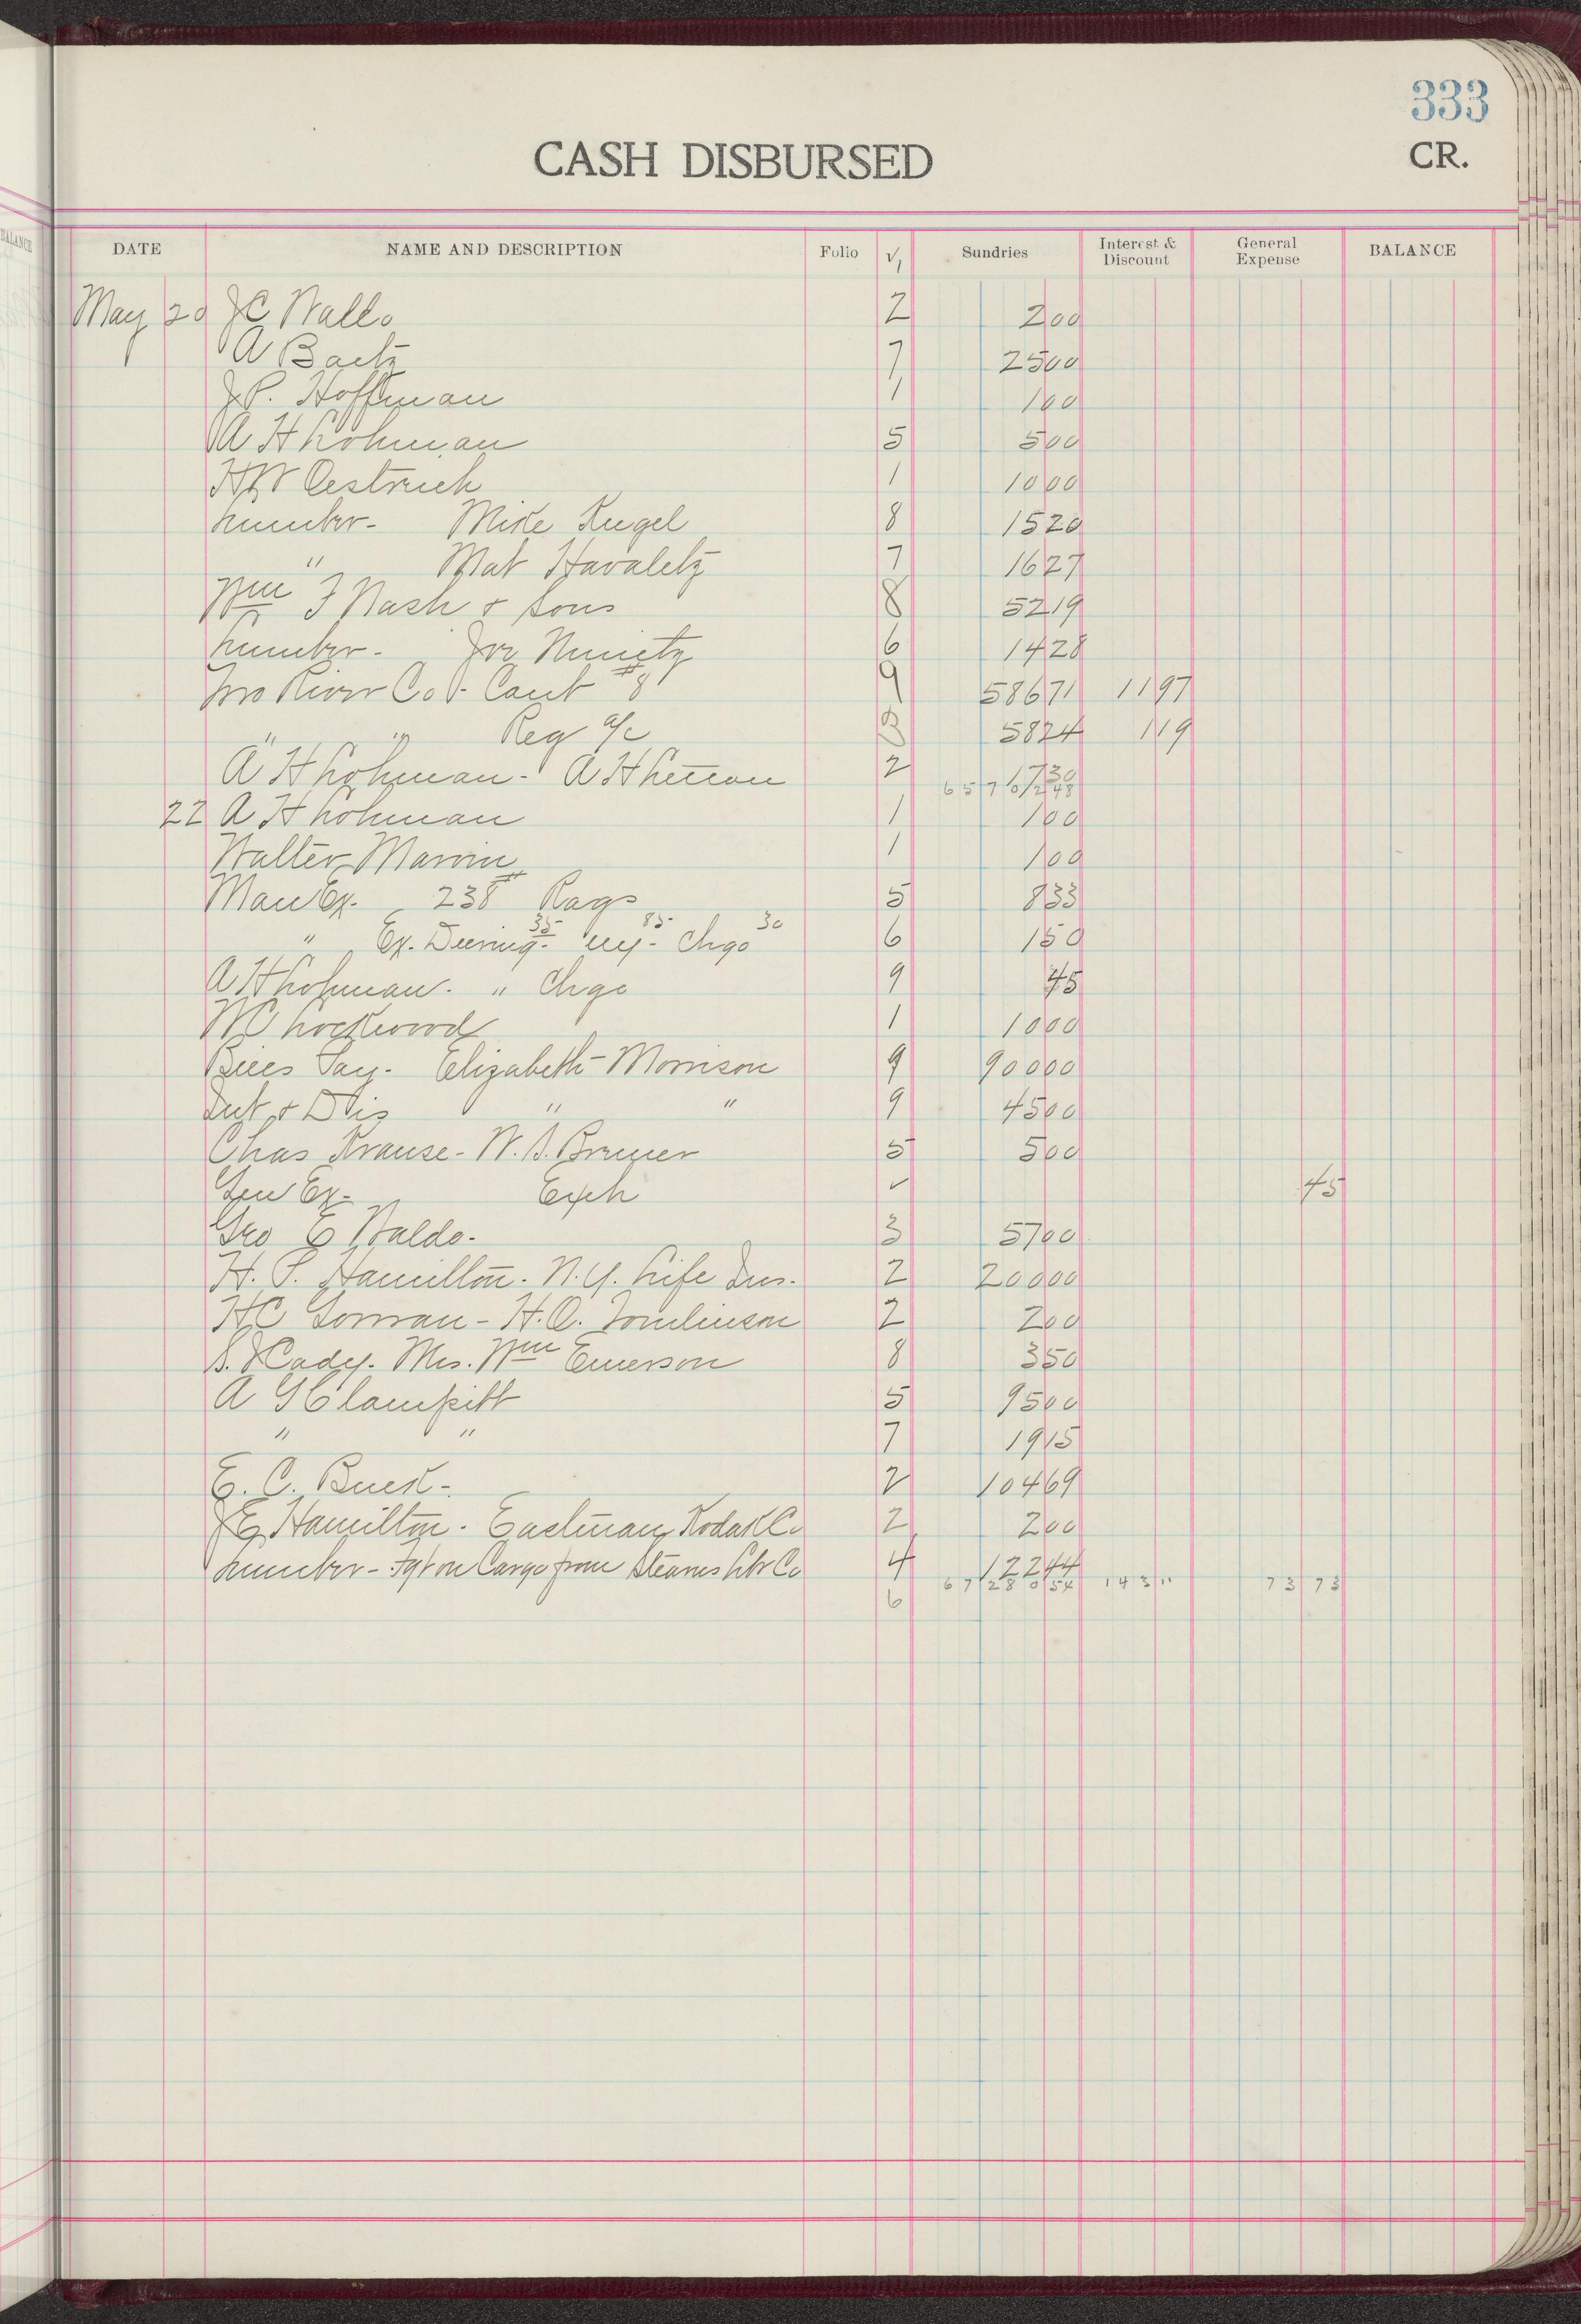 333
CASH DISBURSED CR.
BALANCE
DATE NAME AND DESCRIPTION Folio √1 Sundries Interest & Discount General Expense BALANCE
May 20 J C Wallo 2 2 00
A Baetz 7 25 00
J P. Hoffman 1 1 00
A H Lohman 5 5 00
H W Oestreich 1 10 00
Lumber - Mike Kugel 8 15 20
" Mat Havaletz 7 16 27
Wm F Nash & Sons 8 52 19
Lumber - Joe 6 14 28
Two River Co - Cont #8 9 586 71 11 97
" " Reg a/c 3 58 24 1 19
A H Lohman - A H 2 17 30
6 5 7 0 2 48
22 A H Lohman 1 1 00
Walter Marvin 1 1 00
Man Ex. 238# Rags 5 8 33
" Ex. Deering 35 - NY - 85 Chgo 30 6 1 50
A H Lohman. " Chgo 9 45
W C Lockwood 1 10 00
Bills Pay. Elizabeth Morrison 9 900 00
Int & Dis " " 9 45 00
Chas Krause - W. S. Bremer 5 5 00
Gen Ex - Exch ✓ 45
Geo E Waldo - 3 57 00
H. P. Hamilton. N. Y. Life Ins. 2 200 00
H C Gorman - H. O. Tomlinson 2 2 00
S. J Cady. Mrs. Wm Emerson 8 3 50
A G Clampitt 5 95 00
" " 7 19 15
E. C. Buck - 2 104 69
J E Hamilton. Eastman Kodak Co 2 2 00
Lumber - Fgt on Cargo from Stearns Lbr Co 4 122 44
6 6 7 2 8 0 54 1 4 3 11 7 3 73